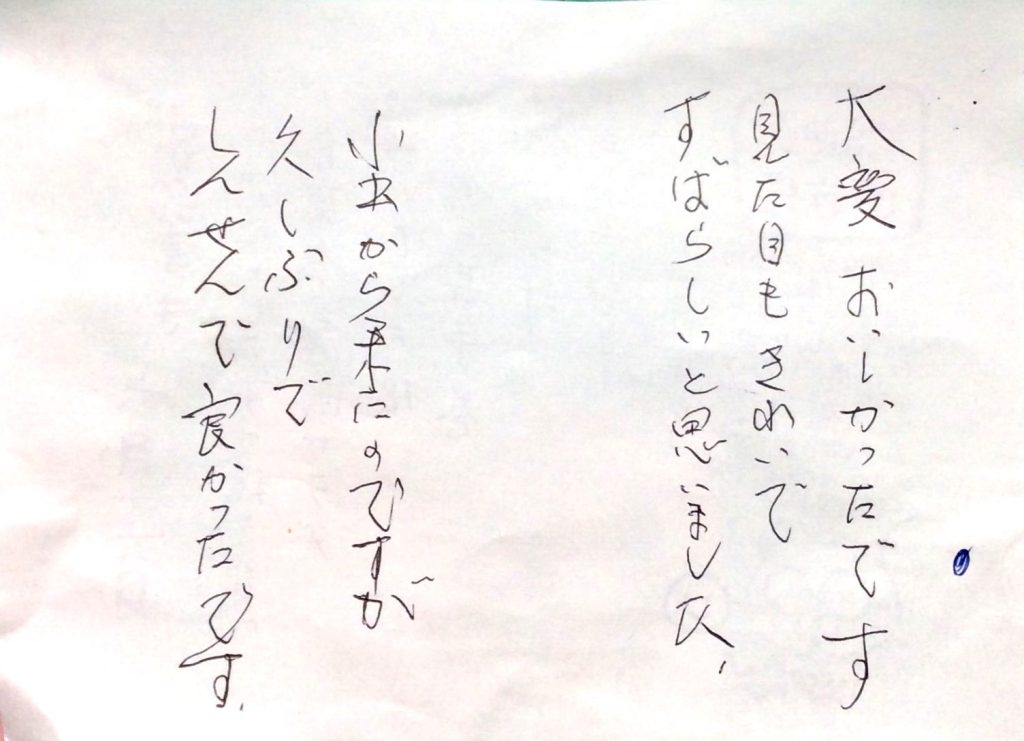 大変おいしかったです
見た目もきれいで
すばらしいと思いました、
から来たのですが
久しぶりで
しんせんで良かったです.